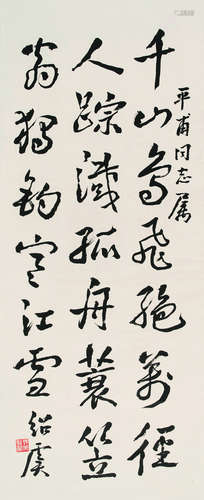 平甫同志属
千山鸟飞绝万径
人踪灭孤舟蓑笠
翁独钓寒江雪
绍虞